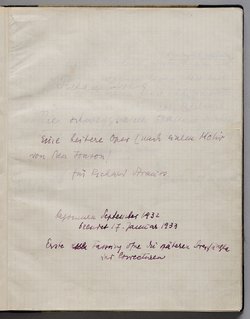 Die schweigsame Frau
Eine heitere Oper (nach einem Motiv
von Ben Jonson)
für Richard Strauss
begonnen September 1932
beendet 17. Januar 1933
Erste Fassung ohne die späteren
und Correcturen